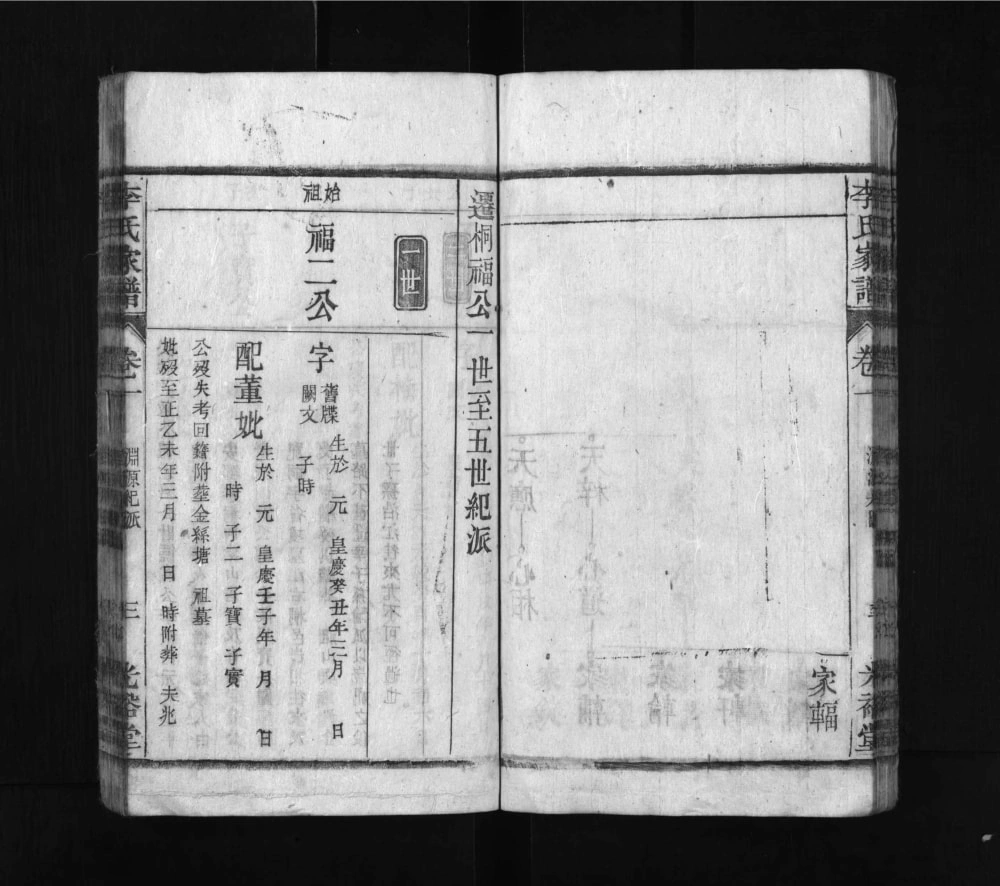 李氏家譜
卷一
家輻
遷桐福公一世至五世紀派
一世
始祖
福二公
字
舊牒闕文
生於元皇慶癸丑年三月 日
子時
配董妣
生於元皇慶壬子年 月 日
時 子二 子寶 子實
公歿失考回籍附塟金縣塘 祖墓
妣歿至正乙未年三月 日 時附葬 夫兆
李氏家譜
卷一
淵源紀派
三
光裕堂